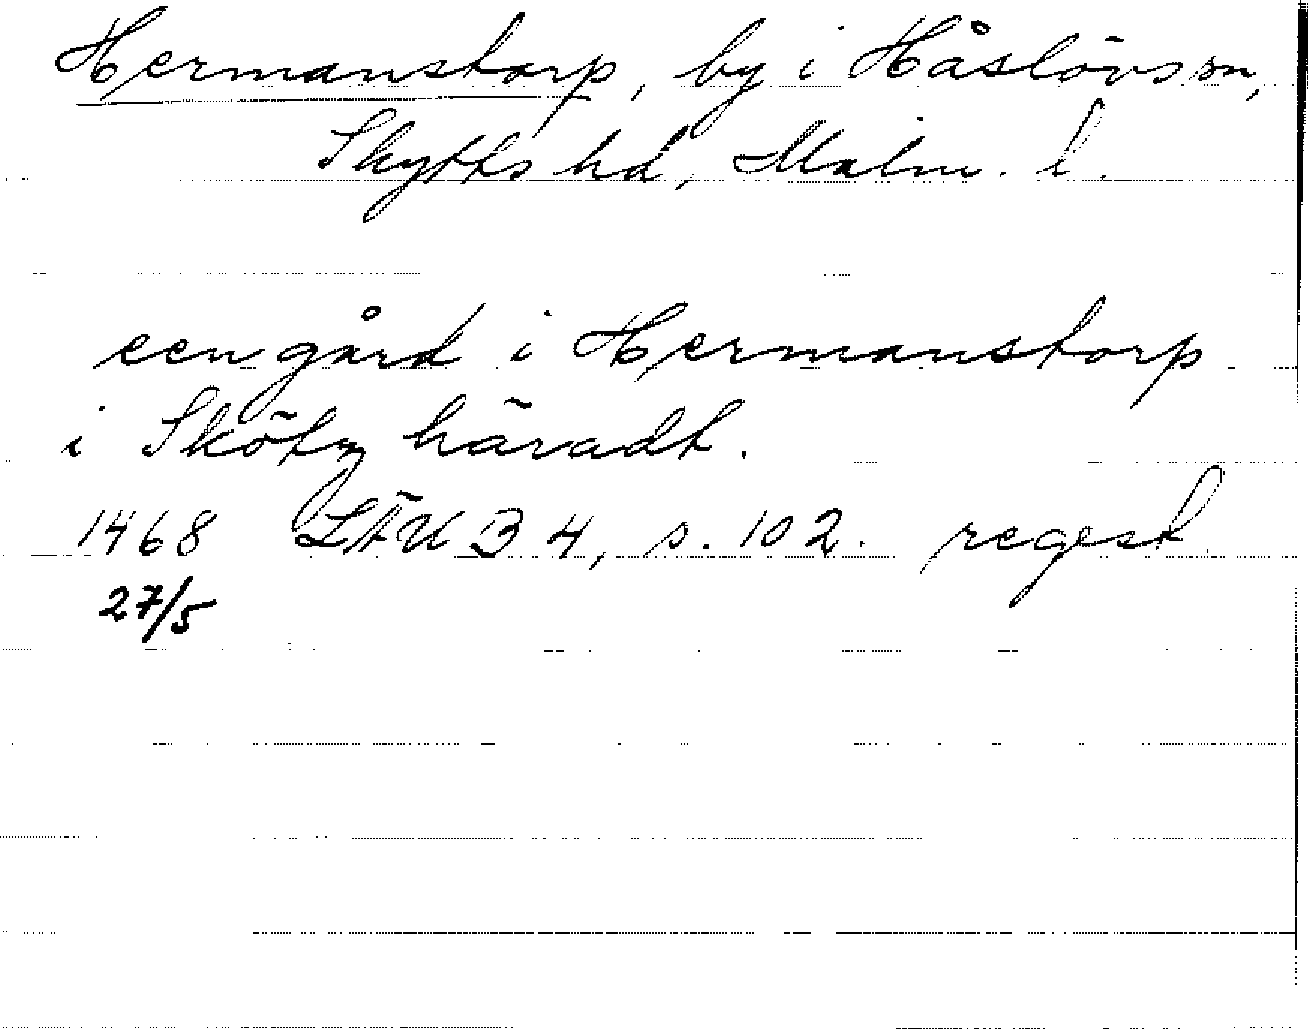 Hermanstorp, by i Håslövs sn,
Skytts hd, Malm. l.
een gård i Hermanstorp
i Skötz häradt.
1468 LÄUB 4, s. 102. regest
27/5